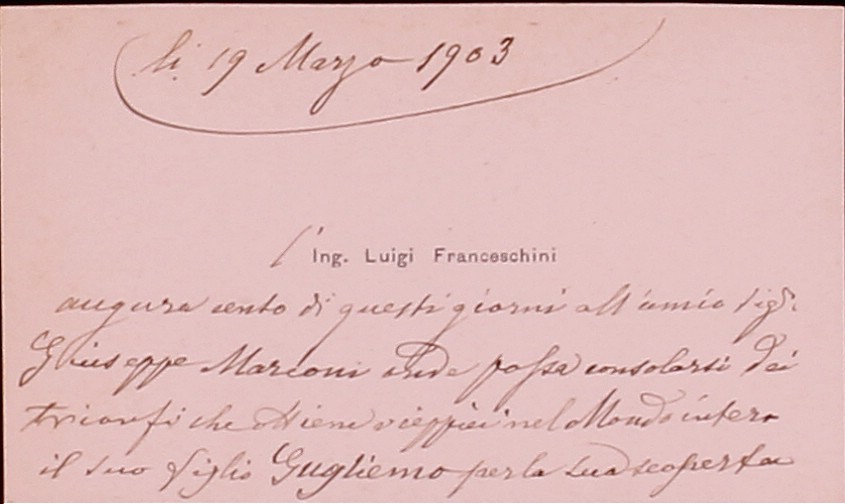 li 19 Marzo 1903
l' Ing. Luigi Franceschini
augura cento di questi giorni all'amico Sigr.
Giuseppe Marconi onde possa consolarsi dei
trionfi che ottiene vieppiù nel Mondo intero
il suo figlio Gugliemo per la sua scoperta